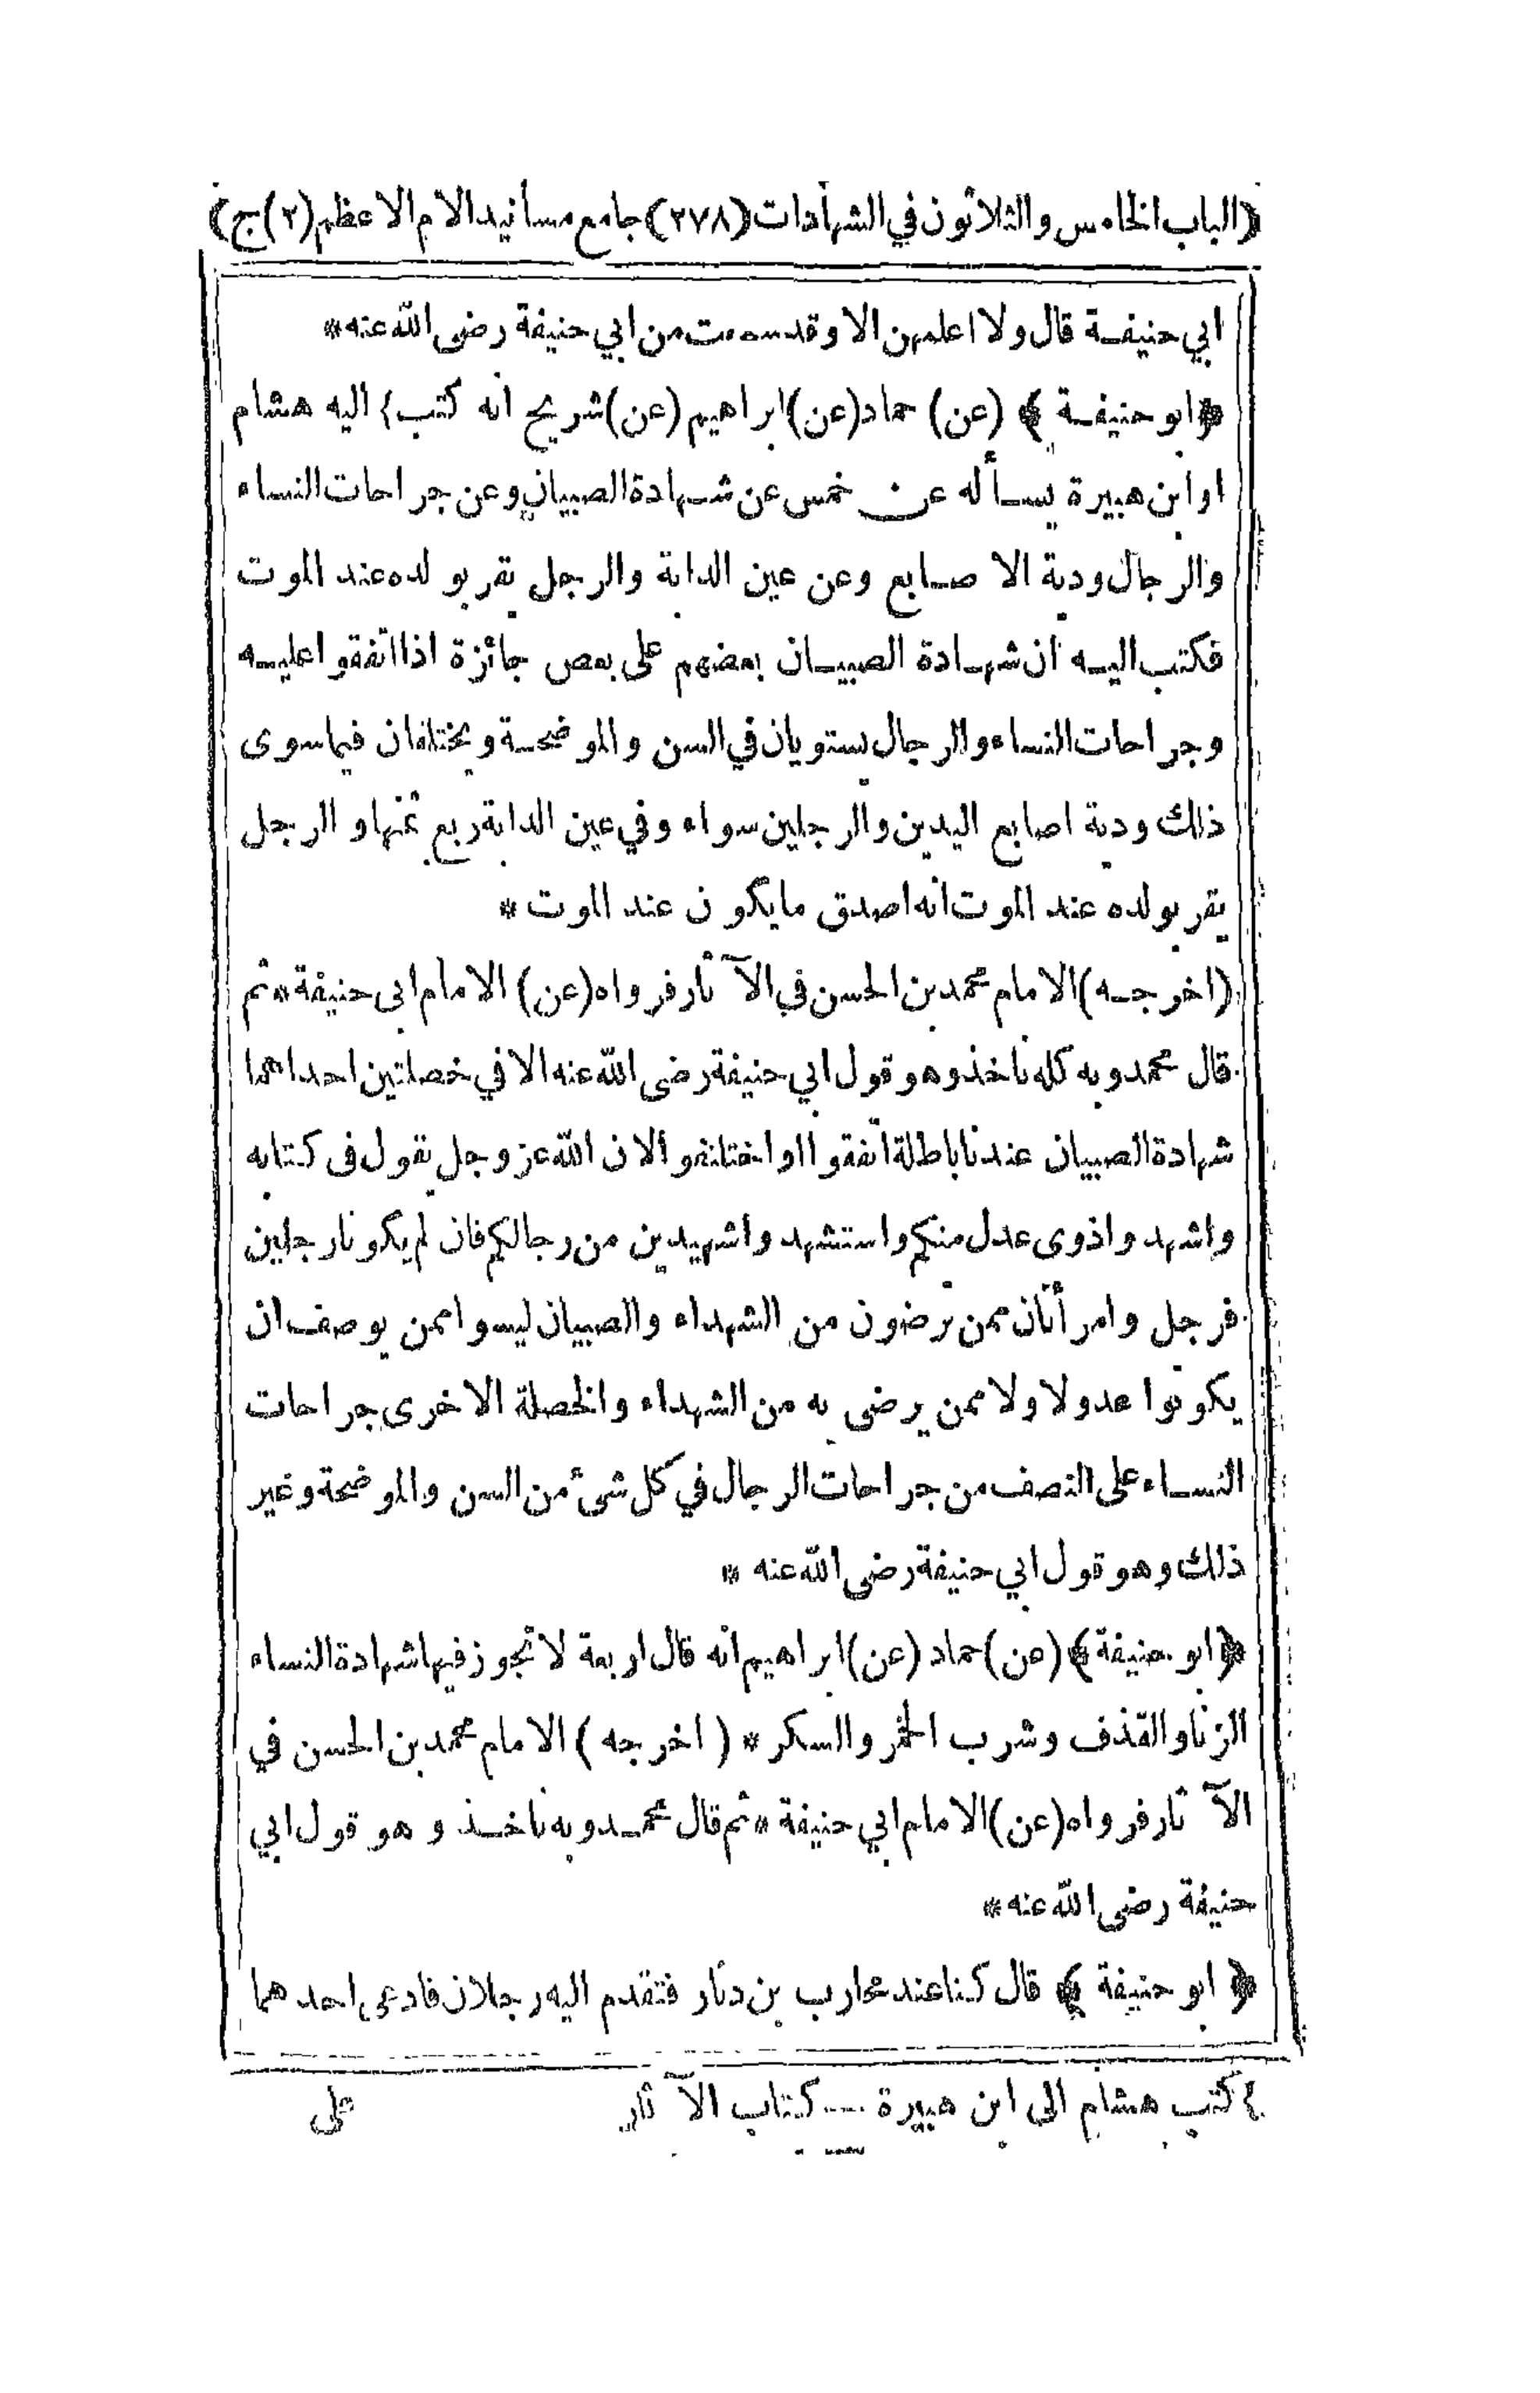 (الباب الخامس والثلاثون في الشهادات (٢٧٨) جامع مسانيد الامام الاعظم (٢) ج)
ابي حنيفة قال ولا اعلمهن الا وقد سمعت من ابي حنيفة رضى الله عنه *
﴿ ابو حنيفة ﴾ (عن) حماد (عن) ابراهيم (عن) شريح انه كتب } اليه هشام
او ابن هبيرة يسأله عن خمس عن شهادة الصبيان وعن جراحات النساء
والرجال ودية الاصابع وعن عين الدابة والرجل يقر بولده عند الموت
فكتب اليه ان شهادة الصبيان بعضهم على بعض جائزة اذا اتفقوا عليه
وجراحات النساء والرجال يستويان في السن والموضحة ويختلفان فيما سوى
ذلك ودية اصابع اليدين والرجلين سواء وفي عين الدابة ربع ثمنها والرجل
يقر بولده عند الموت انه اصدق ما يكون عند الموت *
(اخرجه) الامام محمد بن الحسن في الآثار فرواه (عن) الامام ابى حنيفة * ثم
قال محمد وبه كله ناخذ وهو قول ابي حنيفة رضى الله عنه الا في خصلتين احداهما
شهادة الصبيان عندنا باطلة اتفقوا او اختلفوا لان الله عز وجل يقول فى كتابه
واشهدوا ذوى عدل منكم واستشهدوا شهيدين من رجالكم فان لم يكونا رجلين
فرجل وامرأتان ممن ترضون من الشهداء والصبيان ليسوا ممن يوصف ان
يكونوا عدولا ولا ممن يرضى به من الشهداء والخصلة الاخرى جراحات
النساء على النصف من جراحات الرجال في كل شىء من السن والموضحة وغير
ذلك وهو قول ابي حنيفة رضى الله عنه *
﴿ ابو حنيفة ﴾ (عن) حماد (عن) ابراهيم انه قال اربعة لا تجوز فيها شهادة النساء
الزنا والقذف وشرب الخمر والسكر * ( اخرجه ) الامام محمد بن الحسن في
الآثار فرواه (عن) الامام ابي حنيفة * ثم قال محمد وبه ناخذ وهو قول ابي
حنيفة رضى الله عنه *
﴿ ابو حنيفة ﴾ قال كنا عند محارب بن دثار فتقدم اليه رجلان فادعى احدهما
} كتب هشام الى ابن هبيرة ـــ كتاب الآثار
على